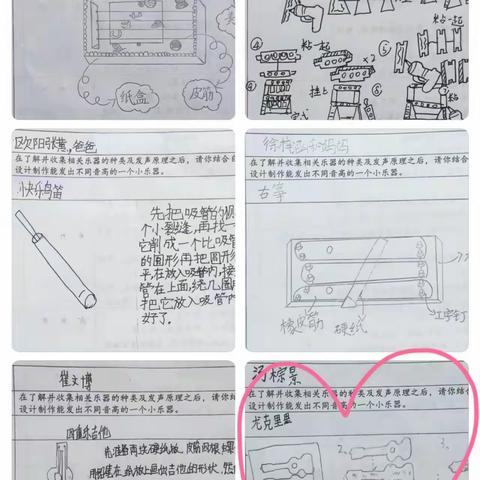 纸盒
皮筋
粘一起
④
粘一起
×2
⑤
⑥
挂上
粘
欧阳张熹,爸爸
在了解并收集相关乐器的种类及发声原理之后,请你结合自
设计制作能发出不同音高的一个小乐器。
快乐鸟笛
先把吸管的
个小裂缝,再找一
它削成一个比吸管
的圆形再把圆形
平,在放入吸管内,接
管在上面,绕几圈
把它放入吸管内
好了。
在了解并收集相关乐器的种类及发声原理之后,请你结合
设计制作能发出不同音高的一个小乐器。
古筝
橡皮筋
硬纸
工字钉
崔文博
在了解并收集相关乐器的种类及发声原理之后,请你结
设计制作能发出不同音高的一个小乐器。
四直弦吉他
先准备两块硬纸板,皮筋四根
用铅笔在纸板上画出吉他的形状,然
汤棕景
在了解并收集相关乐器的种类及发声原理之后,请你结合
设计制作能发出不同音高的一个小乐器。
尤克里里
2、
3、